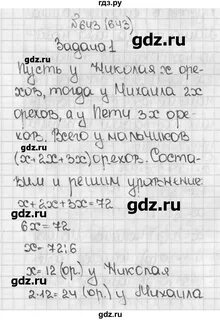 №643 (643)
gdz.ru
Задача 1
Пусть у Николая x оре-
хов, тогда у Михаила 2x
орехов, а у Пети 3x оре-
хов. Всего у мальчиков
(x+2x+3x) орехов. Соста-
вим и решим уравнение:
x+2x+3x=72
6x=72
x=72:6
x=12 (ор.) у Николая
2·12=24 (ор.) у Михаила
gdz.ru
gdz.ru
gdz.ru
gdz.ru
gdz.ru